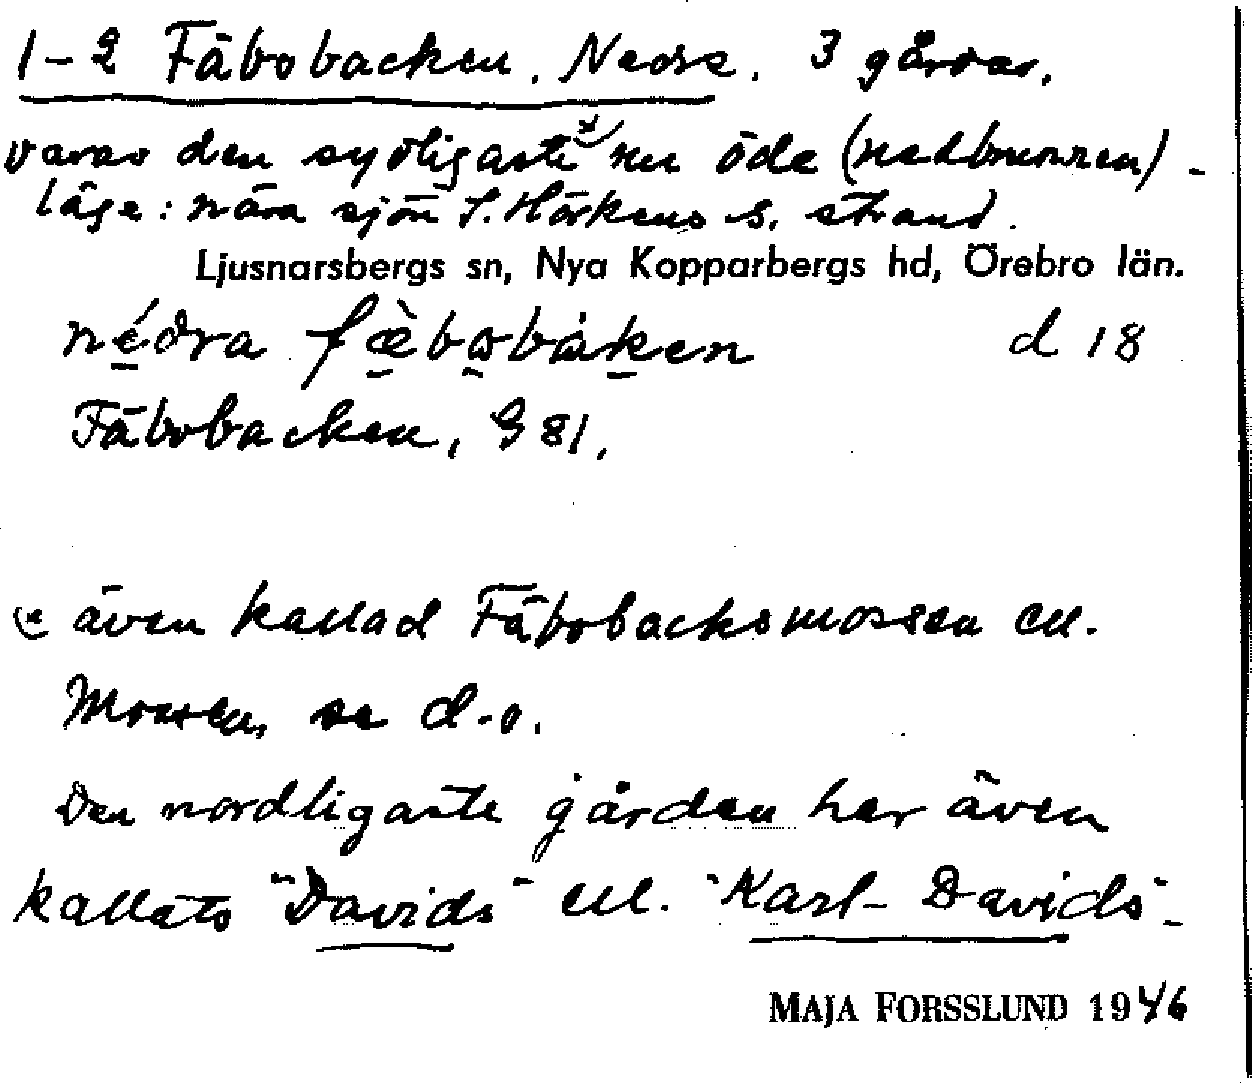 1-2 Fäbobacken, Nedre. 3 gårdar,
varav den sydligaste x) nu öde (nedbrunnen) -
läge: nära sjön S. Hörkens s. strand.
Ljusnarsbergs sn, Nya Kopparbergs hd, Örebro län.
nédra fæ̀bobàken d 18
Fäbobacken, G 81.
x) även kallad Fäbobacksmossen ell.
Mossen, se d.o.
Den nordligaste gården har även
kallats "Davids" ell. "Karl-Davids" -
MAJA FORSSLUND 1946